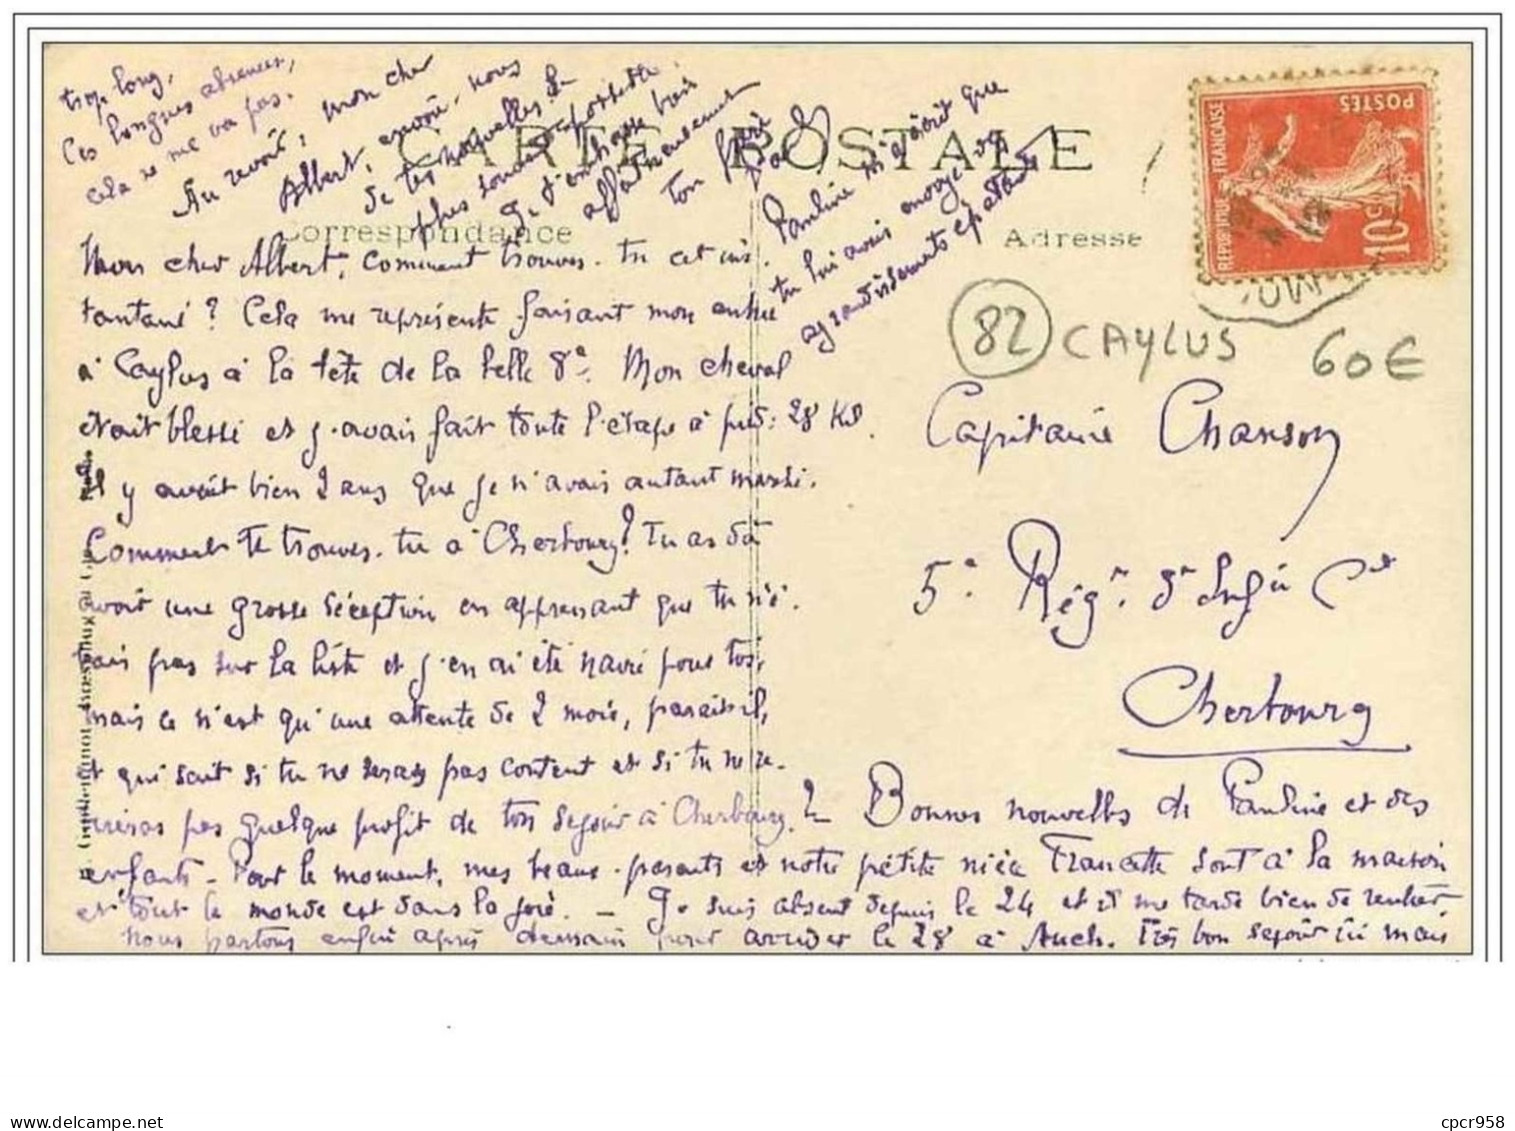 CARTE POSTALE
Correspondance
Adresse
REPUBLIQUE FRANÇAISE
POSTES
10c
82 CAYLUS
60€
Capitaine Chanson
5e Régt d'Infie Cle
Cherbourg
Mon cher Albert, comment trouves-tu cet ins-
tantané? Cela me représente faisant mon entrée
à Caylus à la tête de la belle 8e. Mon cheval
était blessé et j'avais fait toute l'étape à pied: 28 Km.
Il y avait bien 2 ans que je n'avais autant marché.
Comment te trouves-tu à Cherbourg? Tu as dû
avoir une grosse déception en apprenant que tu n'é-
tais pas sur la liste et j'en ai été navré pour toi,
mais ce n'est qu'une attente de 2 mois, paraît-il,
et qui sait si tu ne seras pas content et si tu ne re-
tireras pas quelque profit de ton séjour à Cherbourg? – Bonnes nouvelles de Pauline et des
enfants – Pour le moment, mes beaux-parents et notre petite nièce Francette sont à la maison
et tout le monde est dans la joie. – Je suis absent depuis le 24 et il me tarde bien de rentrer.
Nous partons enfin après demain pour arriver le 28 à Auch. Très bon séjour ici mais
trop long,
Ces longues absences,
cela ne me va pas.
Au revoir, mon cher
Albert, envoie nous
de tes nouvelles le
plus souvent possible.
Je t'embrasse bien
affectueusement
Ton frère
Pauline m'a écrit que
tu lui avais envoyé des
agrandissements épatants
cpcr958